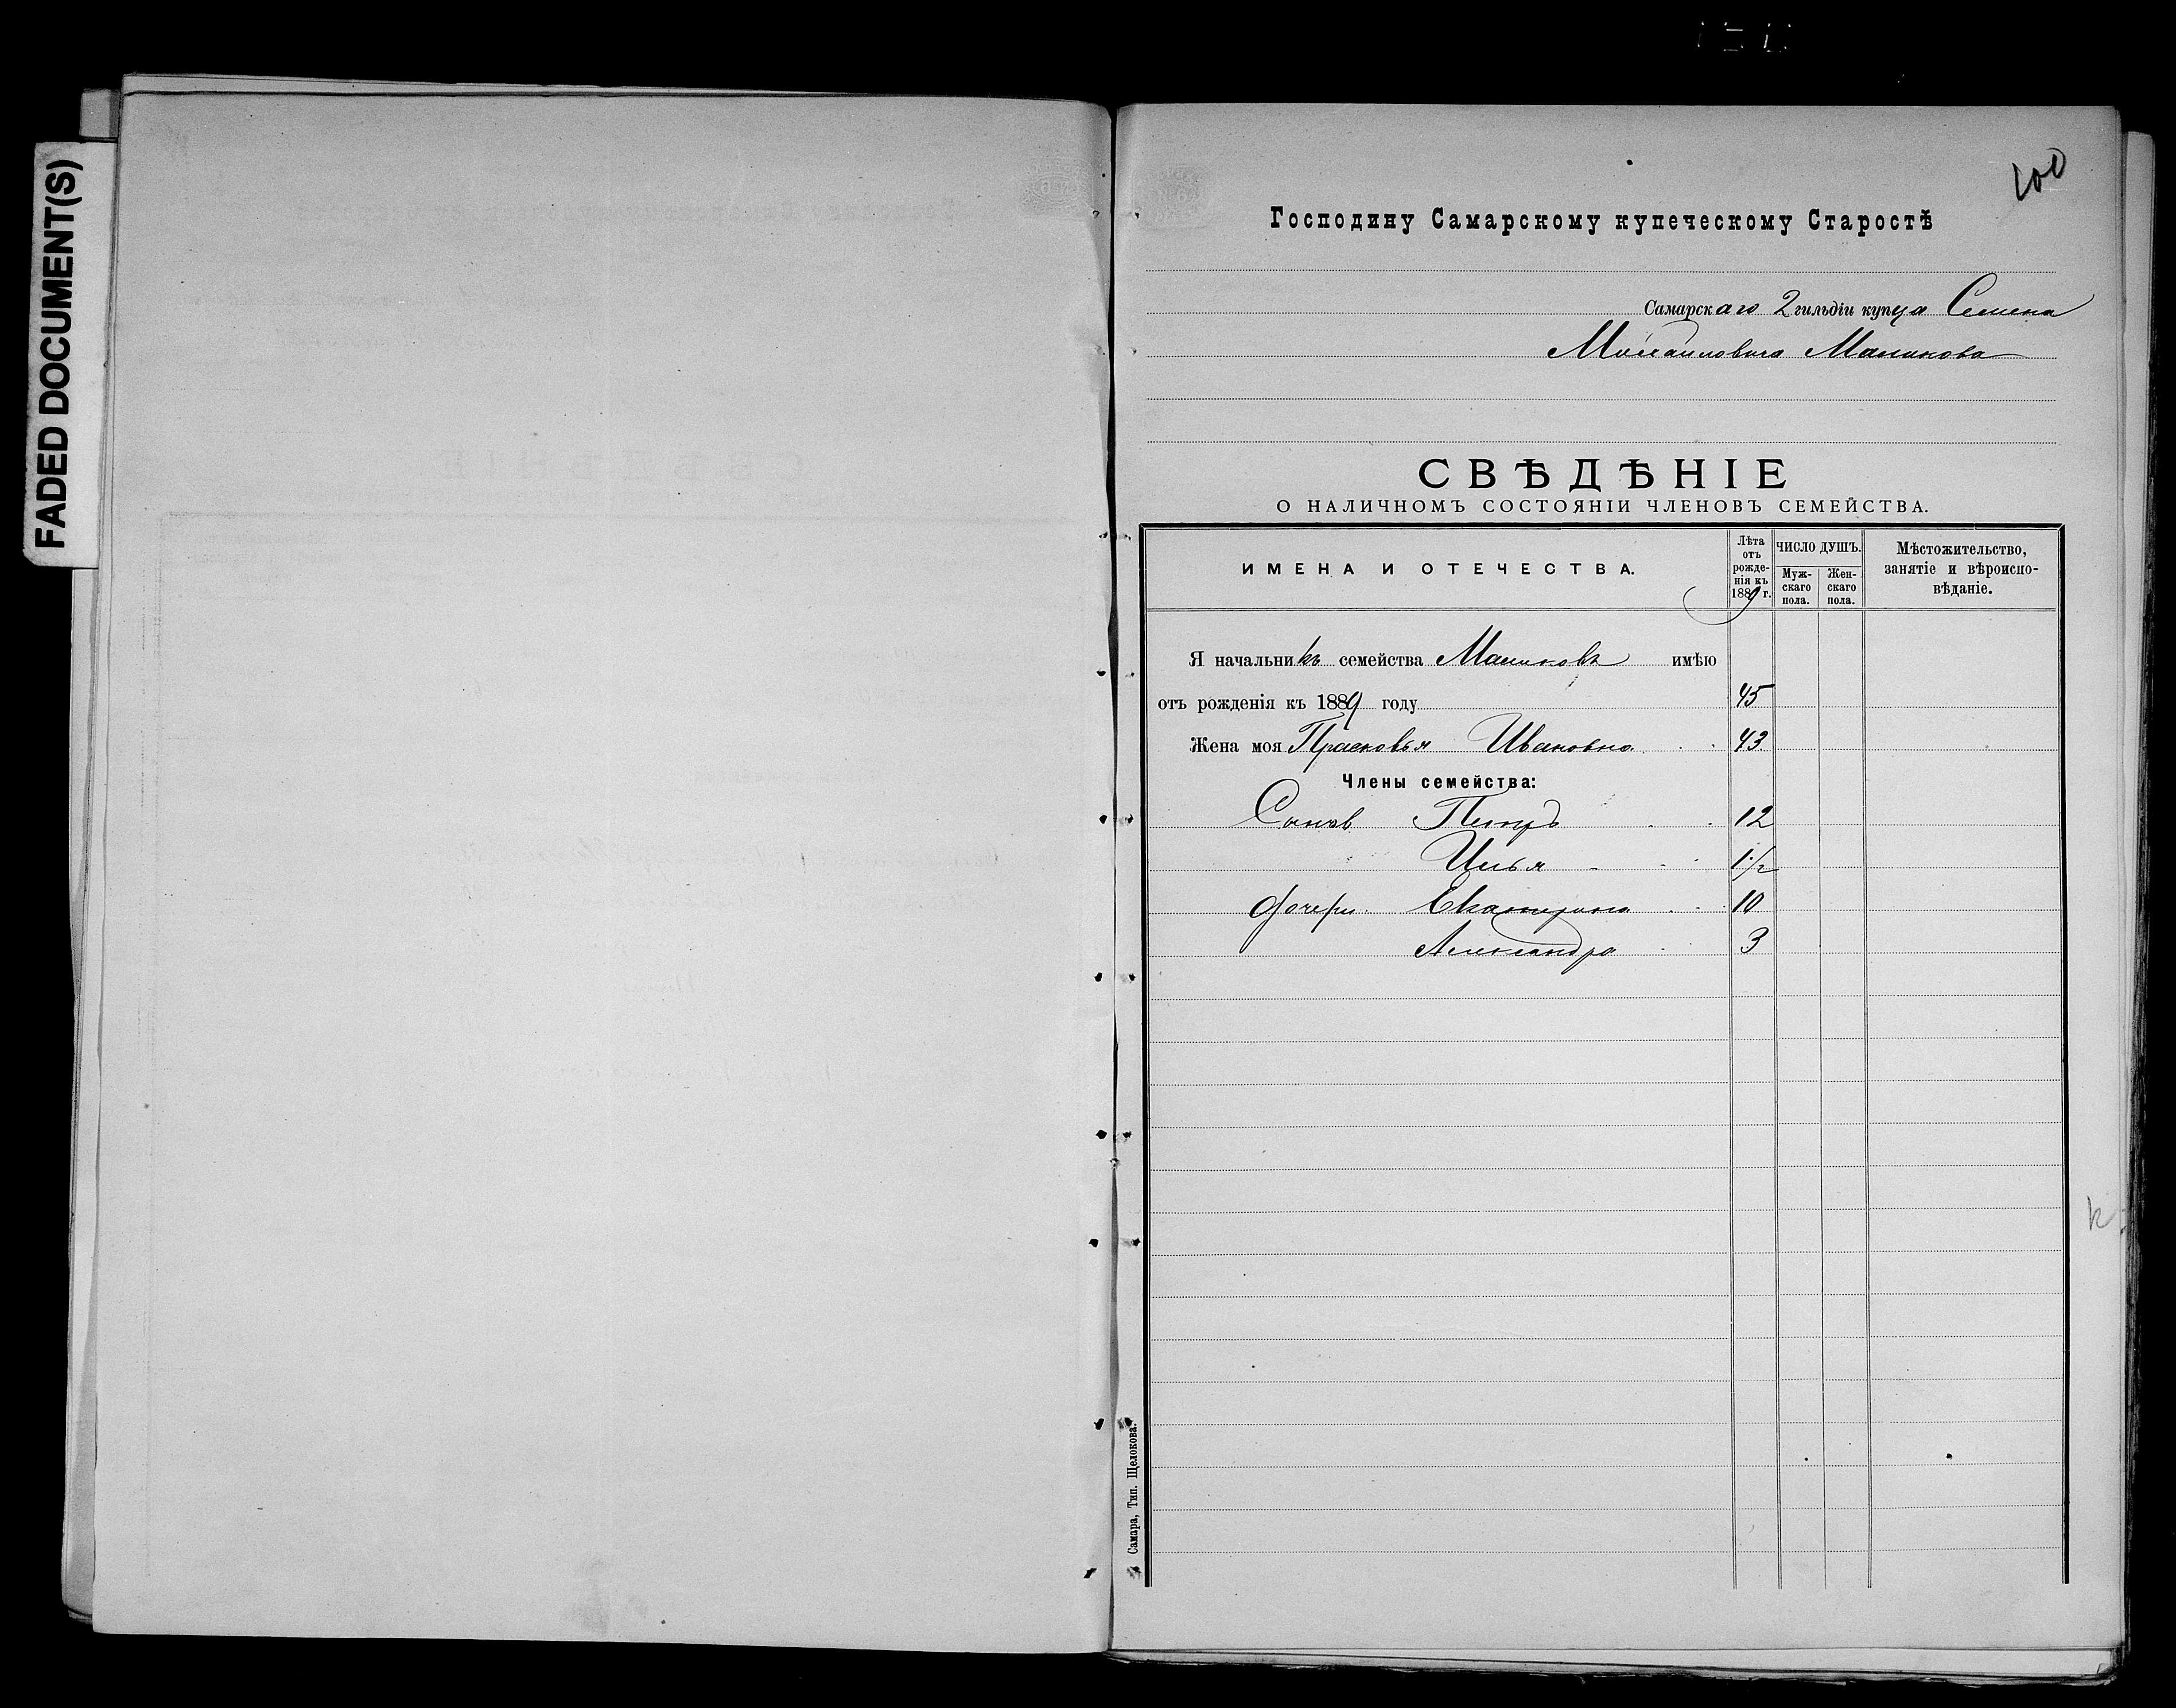 FADED DOCUMENT(S)
100
Господину Самарскому купеческому Старостѣ
Самарскаго 2 гильдіи купца Семена
Михайловича Маликова
СВѢДѢНІЕ
О НАЛИЧНОМЪ СОСТОЯНІИ ЧЛЕНОВЪ СЕМЕЙСТВА.
ИМЕНА И ОТЕЧЕСТВА.
Лѣта отъ рожде-нія къ 1889 г.
ЧИСЛО ДУШЪ.
Муж-скаго пола.
Жен-скаго пола.
Мѣстожительство, занятіе и вѣроиспо-вѣданіе.
Я начальникъ семейства Маликовъ имѣю
отъ рожденія къ 1889 году 45
Жена моя Прасковья Ивановна 43
Члены семейства:
Сынов Петръ 12
Илья 1 1/2
Дочери Екатерина 10
Александра 3
Самара, Тип. Щелокова.